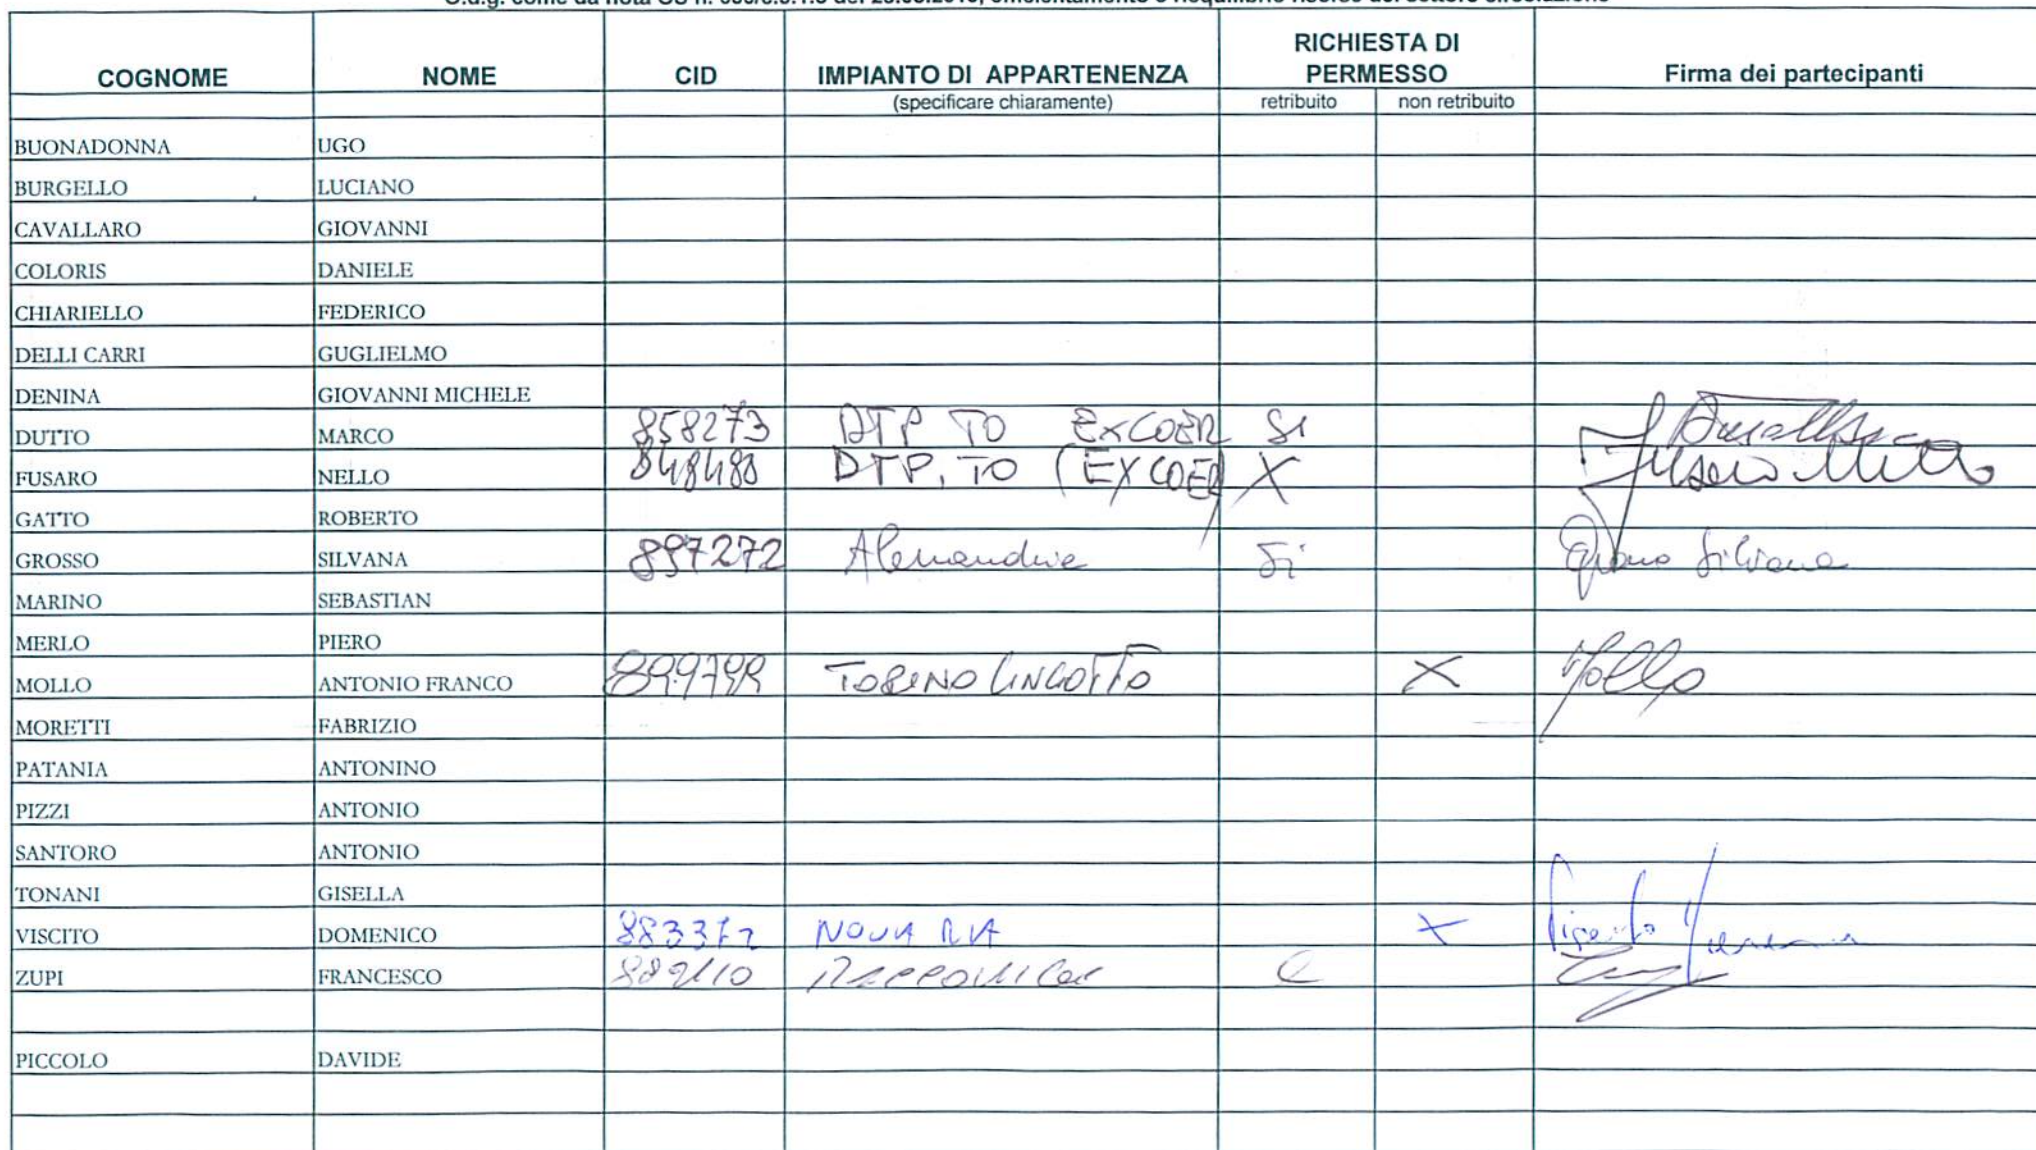 COGNOME NOME CID IMPIANTO DI APPARTENENZA RICHIESTA DI PERMESSO Firma dei partecipanti
(specificare chiaramente) retribuito non retribuito
BUONADONNA UGO
BURGELLO LUCIANO
CAVALLARO GIOVANNI
COLORIS DANIELE
CHIARIELLO FEDERICO
DELLI CARRI GUGLIELMO
DENINA GIOVANNI MICHELE
DUTTO MARCO 858273 DTP TO EXCOER SI
FUSARO NELLO 848480 DTP. TO (EX COER X Fusaro Nello
GATTO ROBERTO
GROSSO SILVANA 897272 Alessandria Si Grosso Silvana
MARINO SEBASTIAN
MERLO PIERO
MOLLO ANTONIO FRANCO TORINO LINGOTTO X Mollo
MORETTI FABRIZIO
PATANIA ANTONINO
PIZZI ANTONIO
SANTORO ANTONIO
TONANI GISELLA
VISCITO DOMENICO 883372 X
ZUPI FRANCESCO
PICCOLO DAVIDE